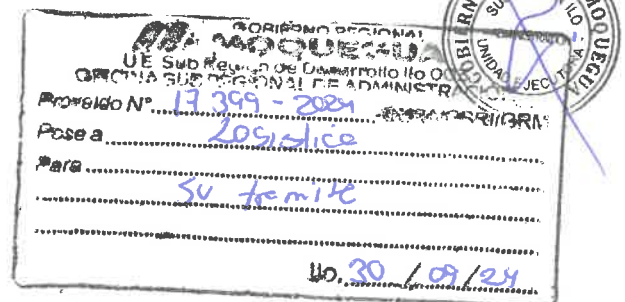 GOBIERNO REGIONAL
MOQUEGUA
U.E Sub Region de Desarrollo Ilo
OFICINA SUB REGIONAL DE ADMINISTR
Proveido N° 17.399 - 2024
Pase a Logistica
Para
Su tramite
Ilo, 30 / 09 / 24
SU ILO
UNIDAD EJECUTORA
GOBIERN MOQUEGU